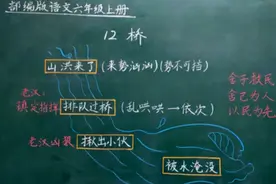 部编版语文六年级上册
12 桥
山洪来了 (来势汹汹)(势不可挡)
老汉:
镇定指挥
排队过桥 (乱哄哄→依次)
老汉凶狠 揪出小伙
被水淹没
舍己为人
以民为先